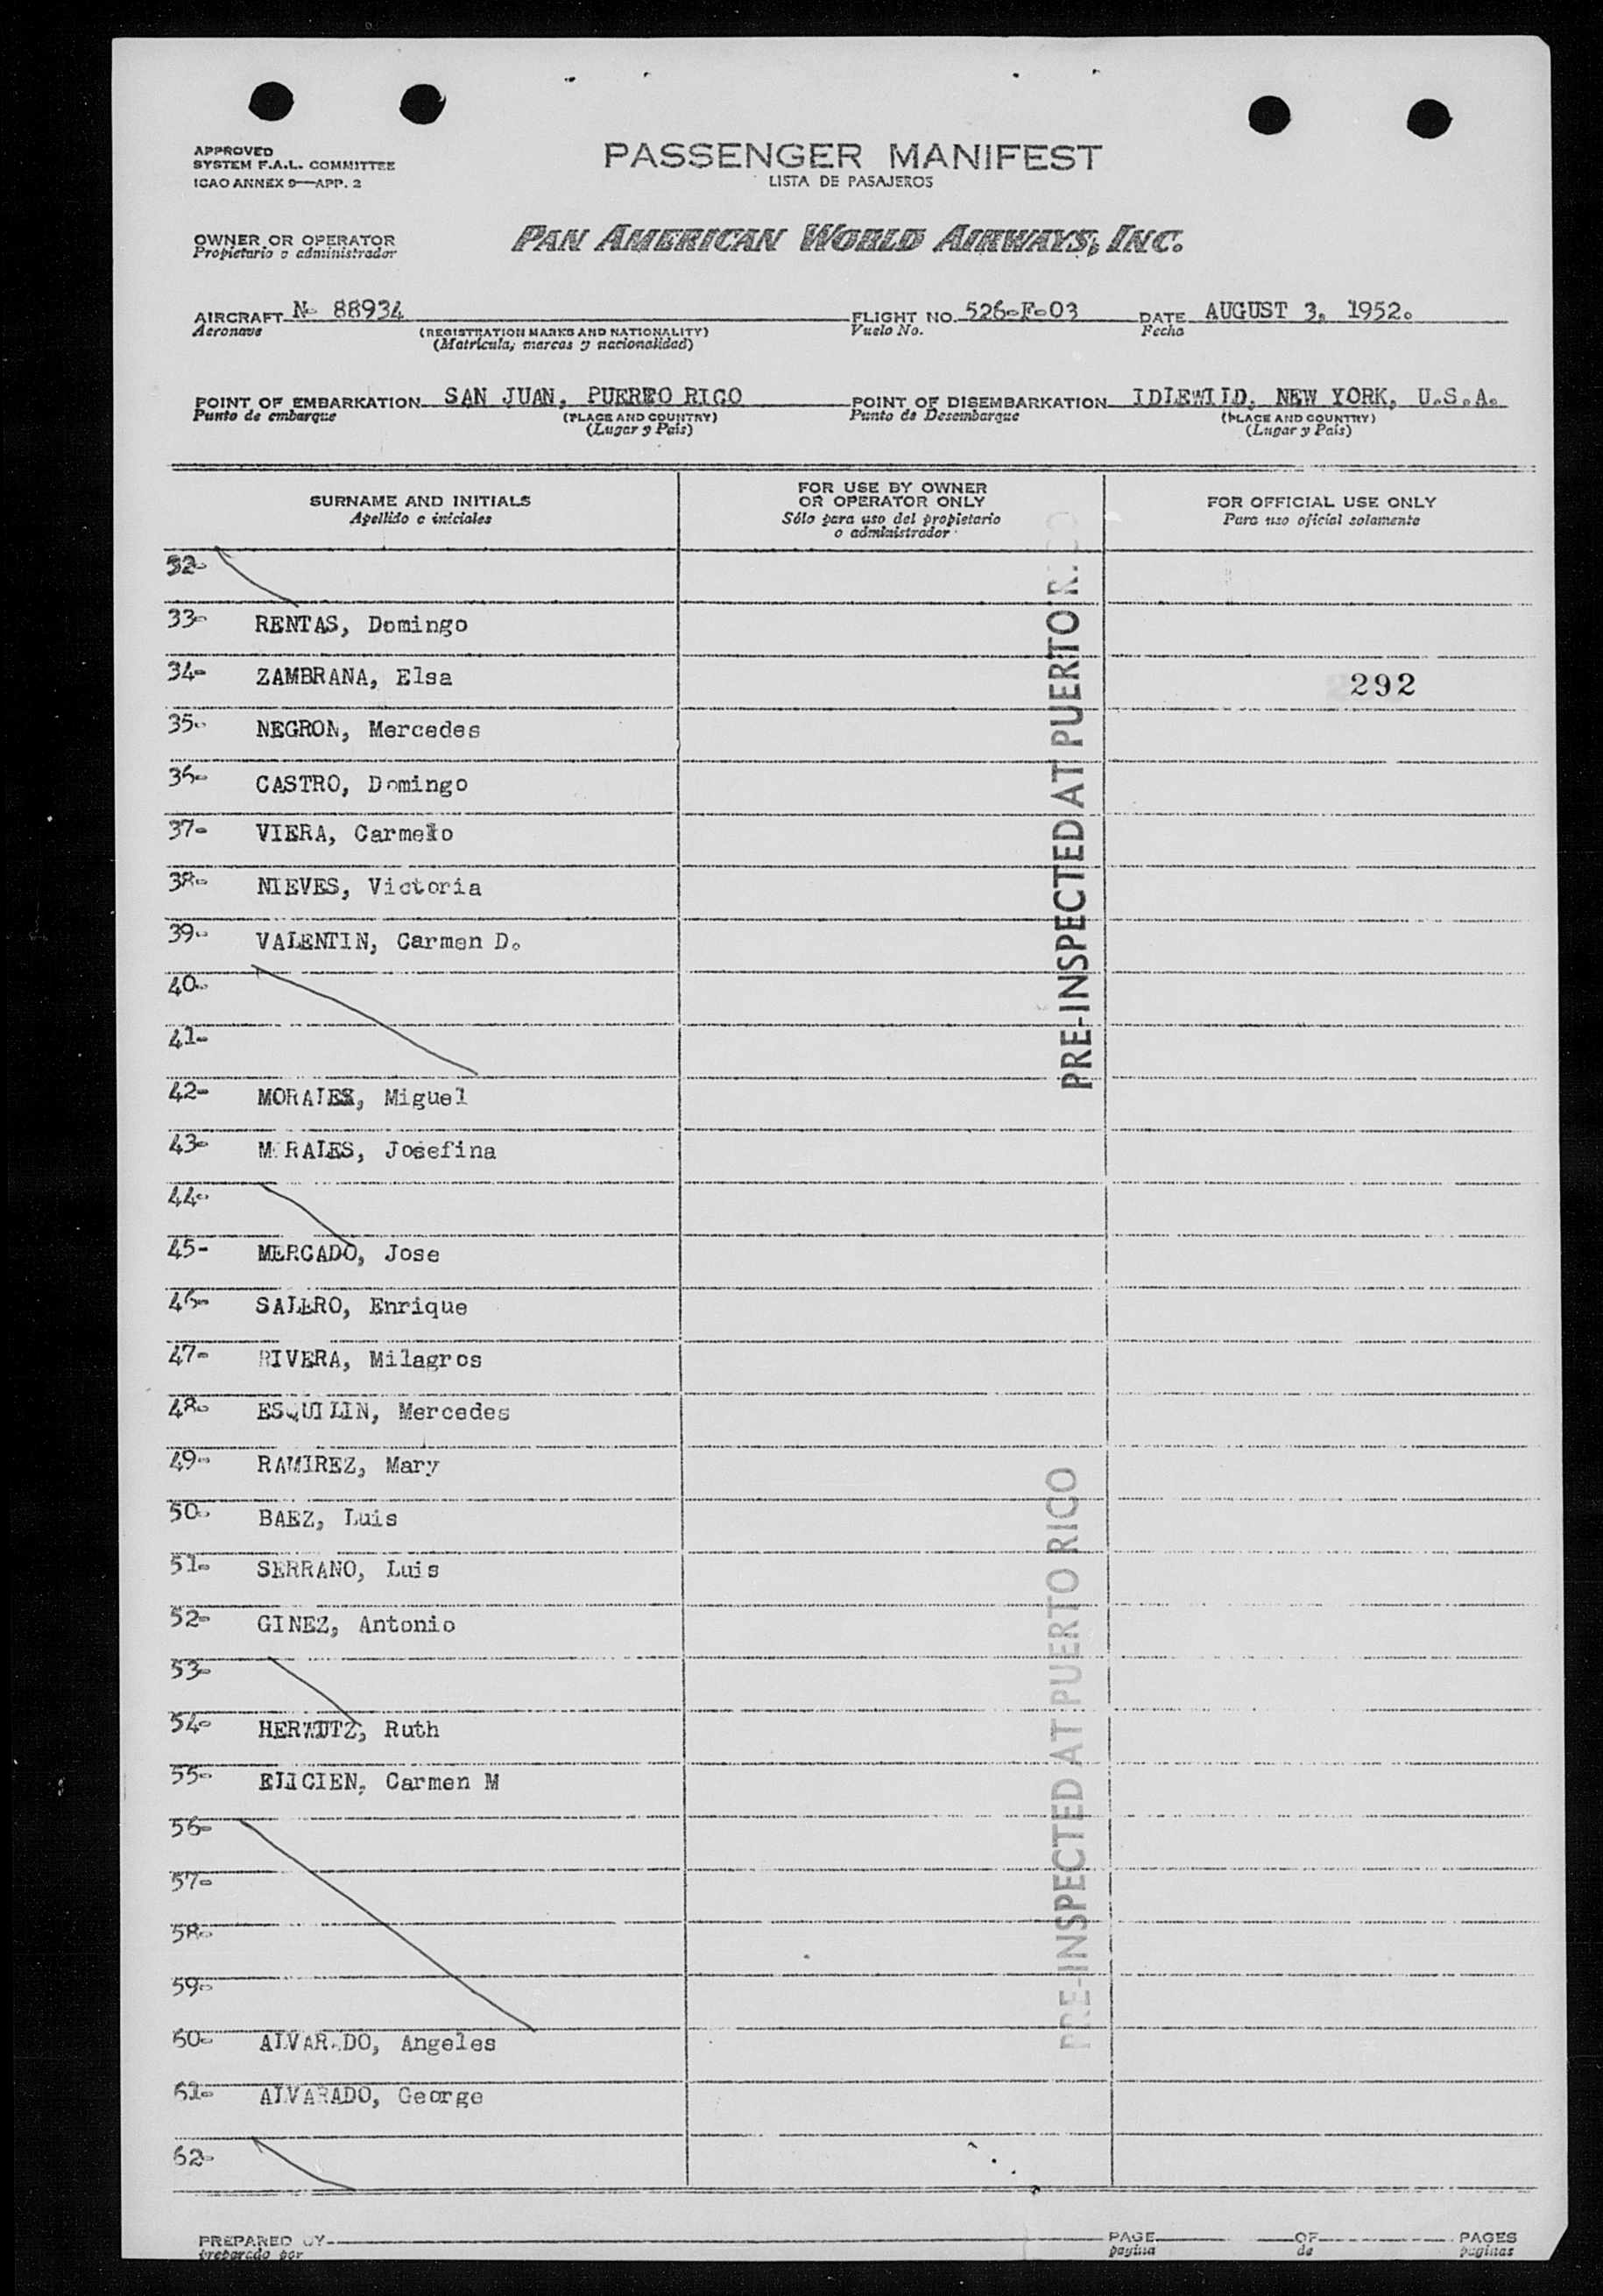 APPROVED
SYSTEM F.A.L. COMMITTEE
ICAO ANNEX 9—APP. 2
PASSENGER MANIFEST
LISTA DE PASAJEROS
OWNER OR OPERATOR
Propietario o administrador
PAN AMERICAN WORLD AIRWAYS, INC.
AIRCRAFT N- 88934
Aeronave
(REGISTRATION MARKS AND NATIONALITY)
(Matrícula, marcas y nacionalidad)
FLIGHT NO. 526-F-03
Vuelo No.
DATE AUGUST 3, 1952.
Fecha
POINT OF EMBARKATION SAN JUAN, PUERTO RICO
Punto de embarque
(PLACE AND COUNTRY)
(Lugar y País)
POINT OF DISEMBARKATION IDLEWILD, NEW YORK, U.S.A.
Punto de Desembarque
(PLACE AND COUNTRY)
(Lugar y País)
SURNAME AND INITIALS
Apellido e iniciales
FOR USE BY OWNER
OR OPERATOR ONLY
Sólo para uso del propietario
o administrador
FOR OFFICIAL USE ONLY
Para uso oficial solamente
32-
33- RENTAS, Domingo
34- ZAMBRANA, Elsa
292
35- NEGRON, Mercedes
36- CASTRO, Domingo
37- VIERA, Carmelo
38- NIEVES, Victoria
39- VALENTIN, Carmen D.
40-
41-
42- MORALES, Miguel
43- M RALES, Josefina
44-
45- MERCADO, Jose
46- SALERO, Enrique
47- RIVERA, Milagros
48- ESQUILIN, Mercedes
49- RAMIREZ, Mary
50- BAEZ, Luis
51- SERRANO, Luis
52- GINEZ, Antonio
53-
54- Ruth
55- ELICIEN, Carmen M
56-
57-
58-
59-
60- ALVARADO, Angeles
61- ALVARADO, George
62-
PRE-INSPECTED AT PUERTO R
PRE-INSPECTED AT PUERTO RICO
PREPARED BY
preparado por
PAGE OF PAGES
pagina de paginas